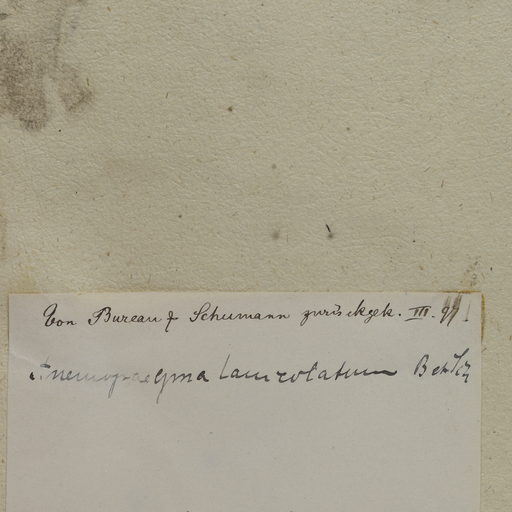 Von Bureau & Schumann zurückgek. III. 97!
Anemopaegma lanceolatum B et Sch